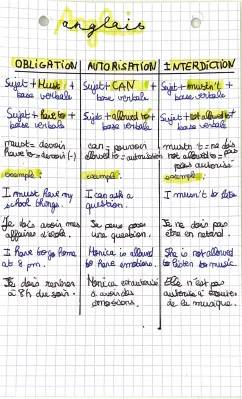 anglais
OBLIGATION
Sujet + Must +
base verbale
Sujet + have to +
base verbale
must = devoir
have to = devoir (-)
exemple :
I must have my
school things.
Je dois avoir mes
affaires d'école.
I have to go home
at 8 pm.
Je dois rentrer
à 8h du soir.
AUTORISATION
Sujet + CAN +
base verbale
Sujet + allowed to +
base verbale
can = pouvoir
allowed to = autorisation
exemple :
I can ask a
question.
Je peux poser
une question.
Monica is allowed
to have emotions.
Monica est autorisé
à avoir des
émotions.
INTERDICTION
Sujet + mustn't +
base verbale
Sujet + not allowed to +
base verbale
mustn't = ne dois
not allowed to =
pas autorisé
exemple :
I musn't to late
Je ne dois pas
être en retard.
She is not allowed
to listen to music.
Elle n'est pas
autorisé à écouter
de la musique.